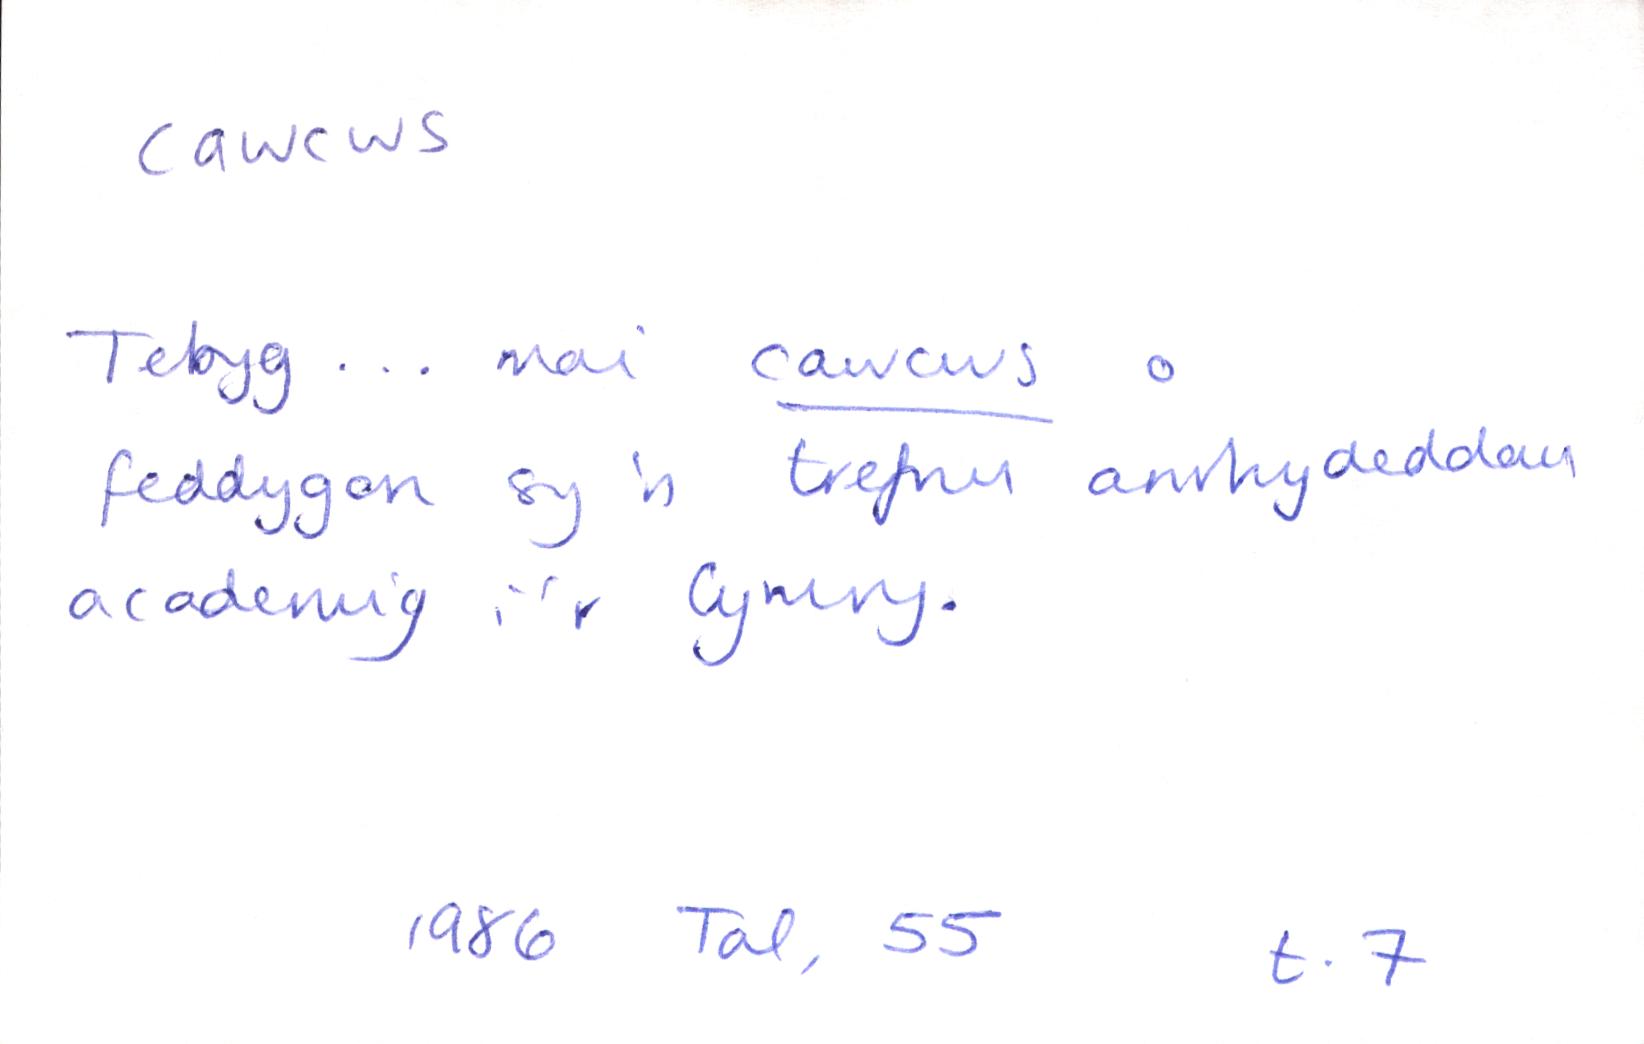 cawcws
Tebyg ... mai cawcws o
feddygon sy'n trefnu anrhydeddau
academig i'r Cymry.
1986 Tal, 55 t. 7